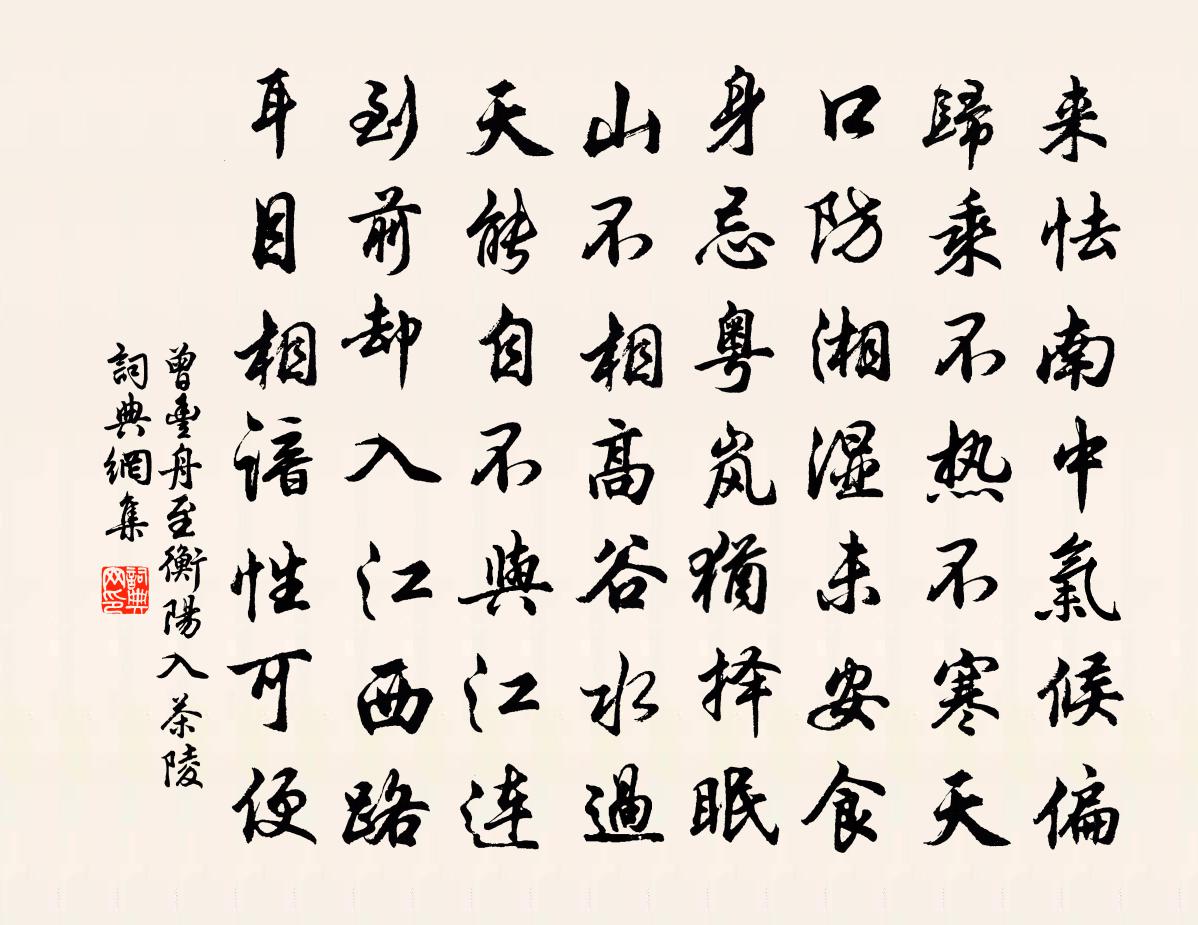 来怯南中氣候偏
歸乘不热不寒天
口防湘湿未安食
身忌粤岚猶择眠
山不相高谷水過
天能自不與江連
到前却入江西路
耳目相諳性可便
曾豐舟至衡陽入茶陵
詞典網集
詞典
网印